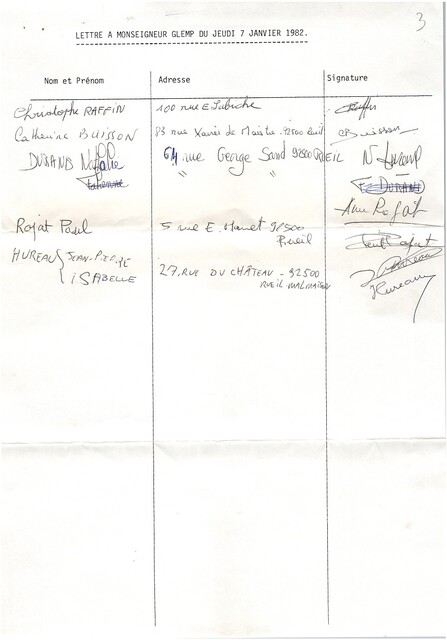 3
LETTRE A MONSEIGNEUR GLEMP DU JEUDI 7 JANVIER 1982.
Nom et Prénom Adresse Signature
Christophe RAFFIN 100 rue E Labiche Raffin
Catherine BUISSON 83 rue Xavier de Maistre. 92500 Rueil CBuisson
DURAND Nathalie 64 rue George Sand 92500 RUEIL N Durand
Fabienne " " F DURAND
Rojat
Rojat Paul 5 rue E. Manet 92500 Paul Rojat
Rueil
HUREAU { JEAN-PIERRE Hureau
ISABELLE 27, RUE DU CHÂTEAU - 92500 Hureau
RUEIL-MALMAISON